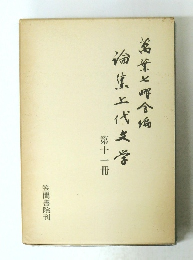 萬葉七曜会編
論集上代文学
第十一冊
笠間書院刊